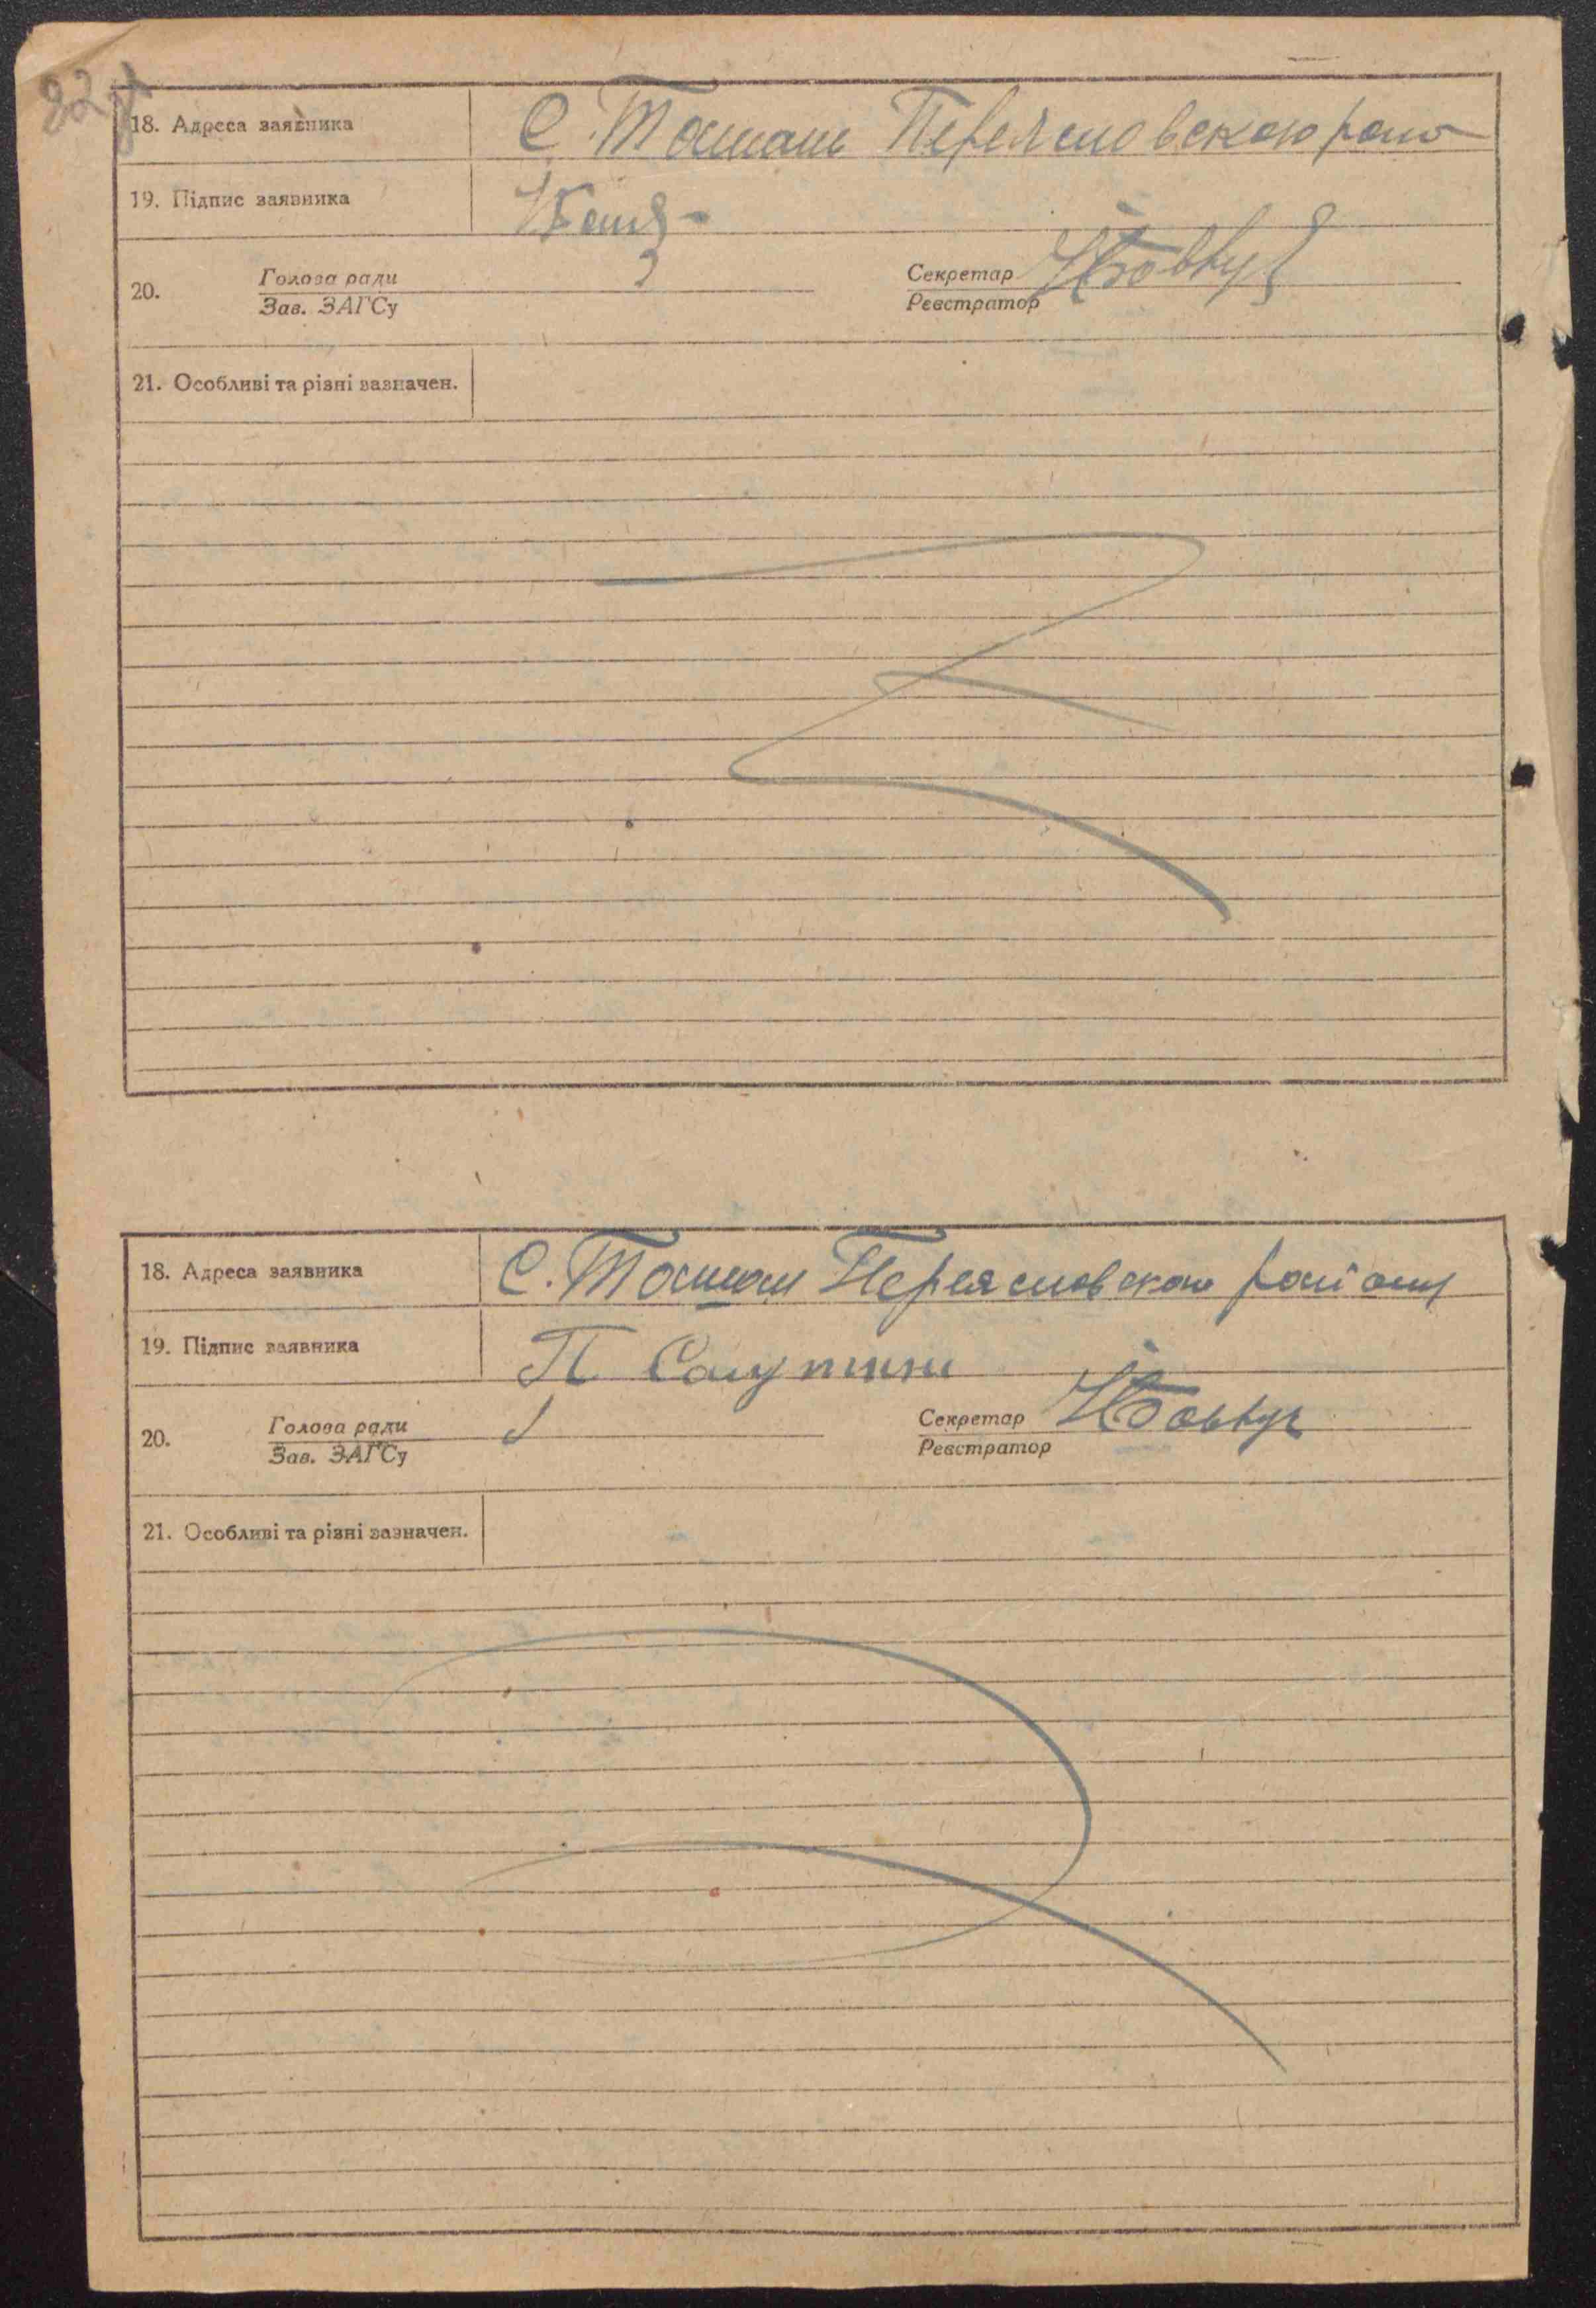 18. Адреса заявника С. Ташань Переясловского рано
19. Підпис заявника
20. Голова ради Секретар
Зав. ЗАГСу Реєстратор
21. Особливі та різні зазначен.
18. Адреса заявника С. Ташан Переясловского району
19. Підпис заявника П
20. Голова ради Секретар
Зав. ЗАГСу Реєстратор
21. Особливі та різні зазначен.